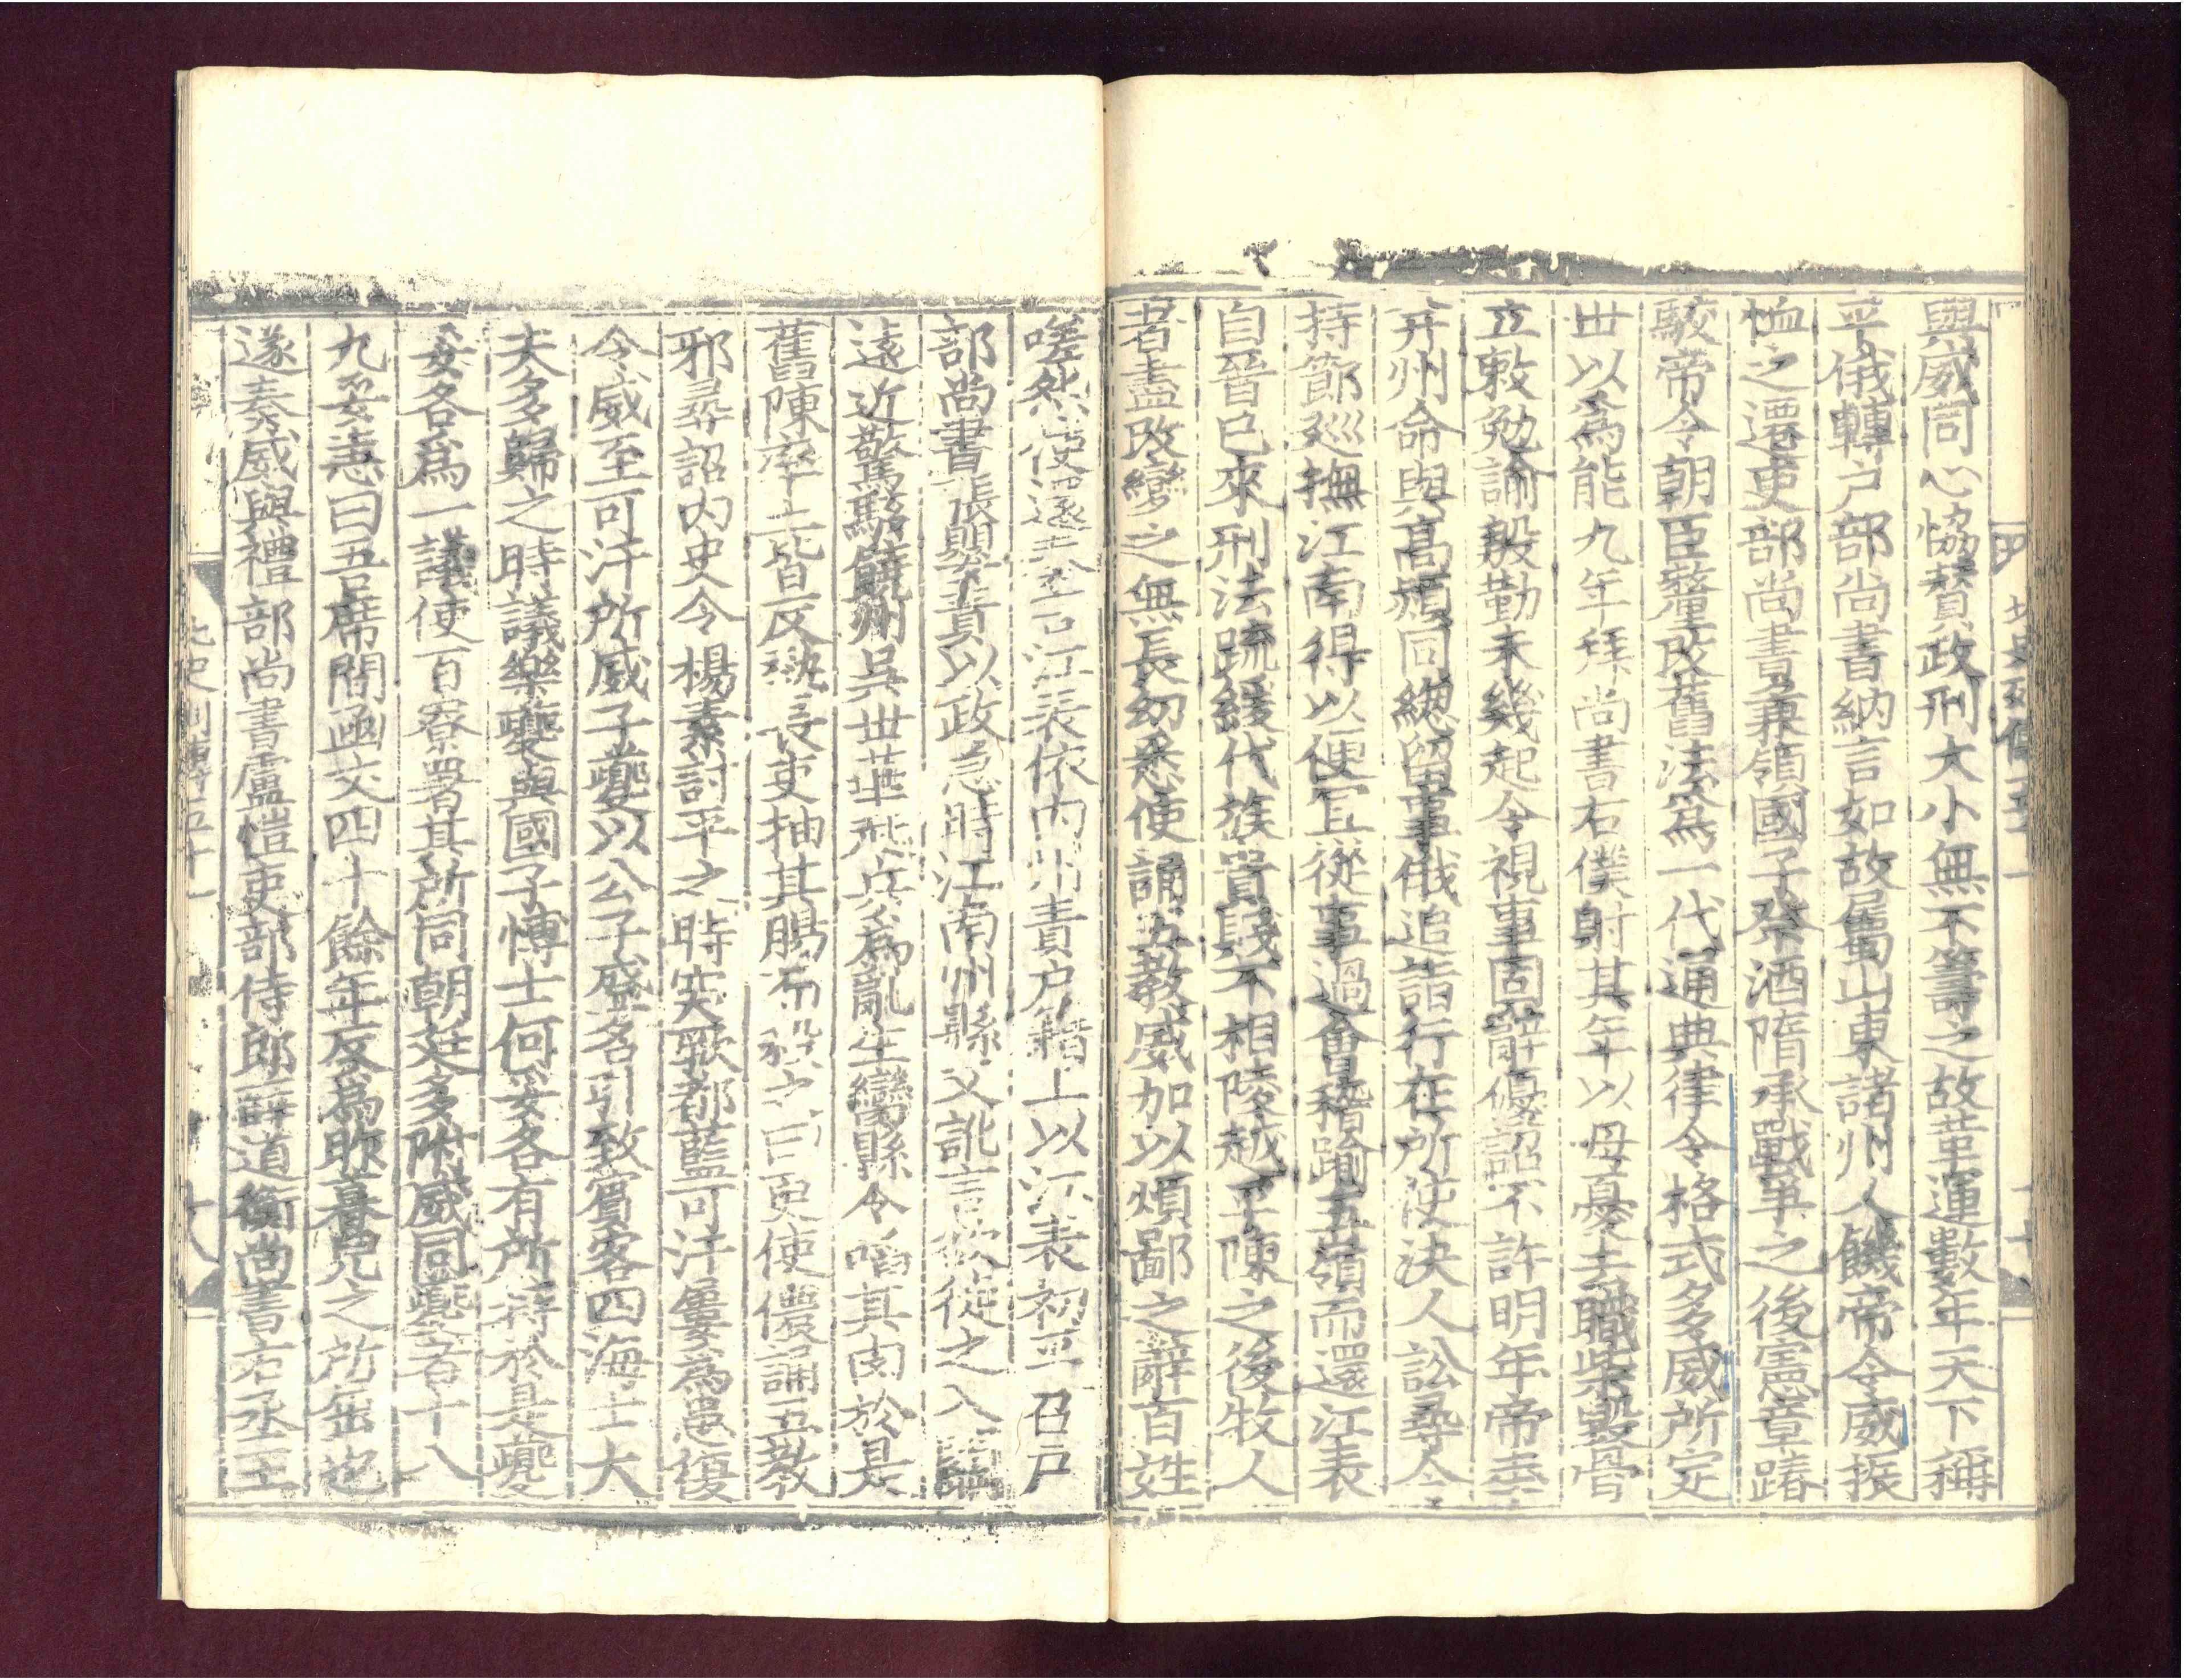 與威同心恊賛政刑大小無不籌之故革運數年天下稱
平俄轉户部尚書納言如故屬山東諸州人饑帝令威振
恤之遷吏部尚書兼領國子祭酒隋承戰爭之後憲章踳
駮帝令朝臣釐改舊法爲一代通典律令格式多威所定
世以爲能九年拜尚書右僕射其年以母憂去職柴毀骨
立敕勉諭殷勤未幾起令視事固辭優詔不許明年帝幸
并州命與高熲同緫留事俄追詣行在所使決人訟尋令
持節廵撫江南得以便宜從事過會稽踰五嶺而還江表
自晉已來刑法疏緩代族貴賤不相陵越平陳之後牧人
者盡改變之無長幼悉使誦五教威加以煩鄙之辭百姓
嗟然使還奏言江表依内州責户籍上以江表初平召户
部尚書張嬰責以政急時江南州縣又訛言欲徙之入關
遠近驚駭饒州吳世華起兵爲亂生臠縣令啗其肉於是
舊陳率土皆反執長吏抽其腸而殺之曰更使儂誦五教
邪尋詔内史令楊素討平之時突厥都藍可汗屢爲患復
令威至可汗所威子夔以公子盛名引致賓客四海士大
夫多歸之時議樂夔與國子博士何妥各有所持於是夔
妥各爲一議使百寮署其所同朝廷多附威同夔者十八
九妥恚曰吾席間函丈四十餘年反爲昨暮兒之所屈也
遂奏威與禮部尚書盧愷吏部侍郎薛道衡尚書右丞王
北史列傳五十一